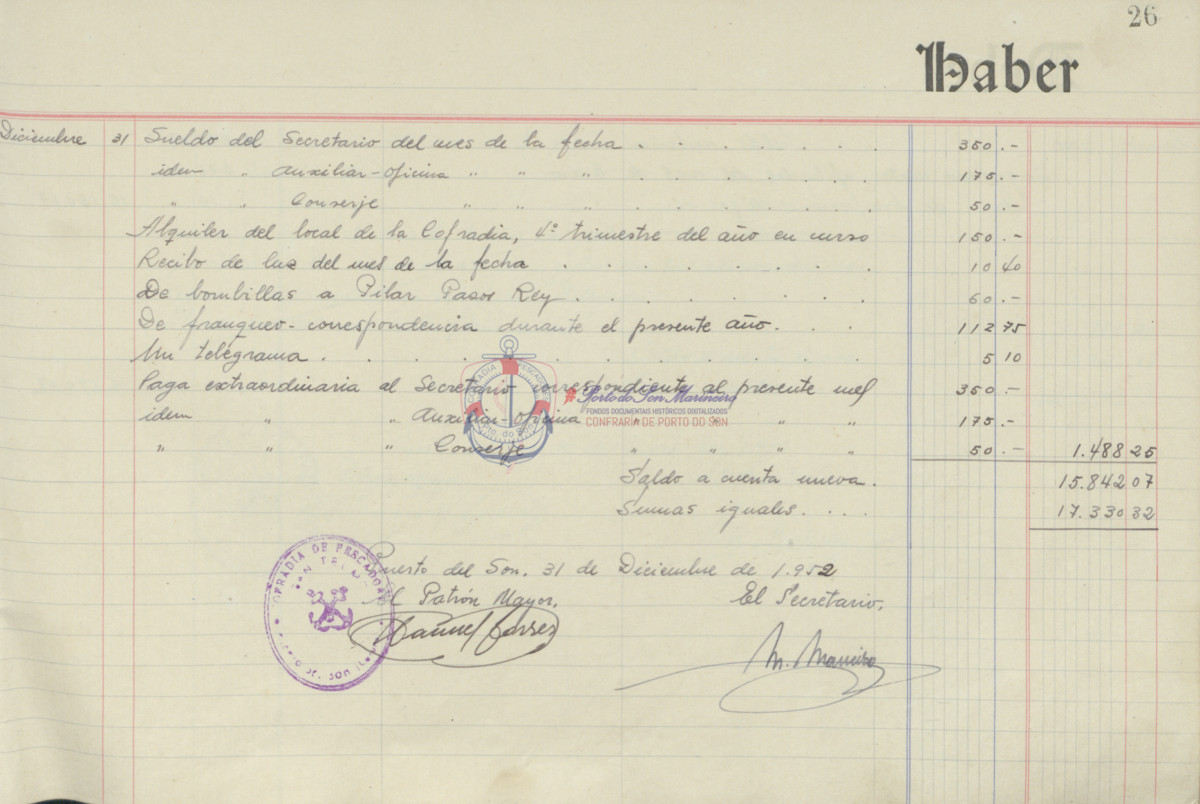 26
Haber
Diciembre 31 Sueldo del Secretario del mes de la fecha . . . . . . 350.-
idem " Auxiliar-oficina " " " . . . . . 175.-
" " Conserje " " " . . . . . 50.-
Alquiler del local de la Cofradia, 4º trimestre del año en curso 150.-
Recibo de luz del mes de la fecha . . . . . . . 10 40
De bombillas a Pilar Pasos Rey . . . . . . . 60.-
De franqueo-correspondencia durante el presente año. . . . 112 75
Un telégrama . . . . . . . . . . . . 5 10
Paga extraordinaria al Secretario correspondiente al presente mes 350.-
idem " " Auxiliar-oficina " " " " 175.-
" " " Conserje " " " " 50.- 1.488 25
Saldo a cuenta nueva. 15.842 07
Sumas iguales. . . . 17.330 32
Puerto del Son, 31 de Diciembre de 1.952
El Patrón Mayor, El Secretario,
Manuel
M. Maneiro
COFRADIA DE PESCADORES
SAN TELMO
Porto do Son Mariñeiro
FONDOS DOCUMENTAIS HISTÓRICOS DIXITALIZADOS
CONFRARIA DE PORTO DO SON